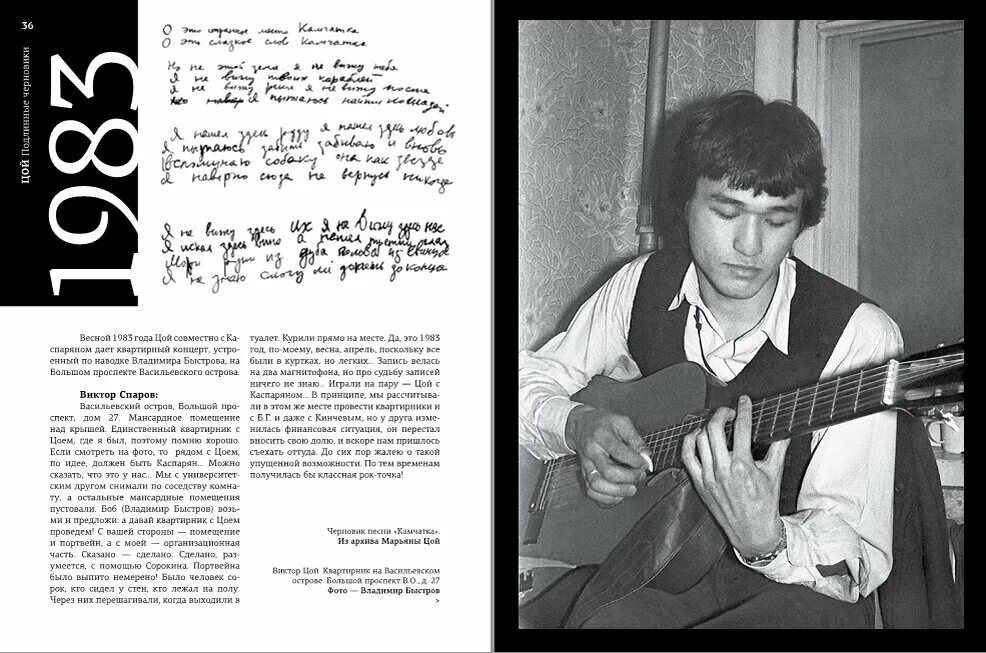 36
ЦОЙ Подлинные черновики
1983
О это странное место Камчатка
О это сладкое слово Камчатка
Но на этой земле я не вижу тебя
Я не вижу твоих кораблей
Я не вижу реки я не вижу моста
Я пытаюсь найти
Я нашел здесь руду я нашел здесь любовь
Я пытаюсь забыть забываю и вновь
Вспоминаю собаку она как звезда
Я наверно сюда не вернусь никогда
Я не вижу здесь их я не вижу здесь нас
Я искал здесь вино а нашел третий глаз
Мои руки из дуба голова из свинца
Я не знаю смогу ли допеть до конца
Весной 1983 года Цой совместно с Ка-
спаряном дает квартирный концерт, устро-
енный по наводке Владимира Быстрова, на
Большом проспекте Васильевского острова.
Виктор Спаров:
Васильевский остров, Большой про-
спект, дом 27. Мансардное помещение
над крышей. Единственный квартирник с
Цоем, где я был, поэтому помню хорошо.
Если смотреть на фото, то рядом с Цоем,
по идее, должен быть Каспарян... Можно
сказать, что это у нас... Мы с университет-
ским другом снимали по соседству комна-
ту, а остальные мансардные помещения
пустовали. Боб (Владимир Быстров) возь-
ми и предложи: а давай квартирник с Цоем
проведем! С вашей стороны — помещение
и портвейн, а с моей — организационная
часть. Сказано — сделано. Сделано, раз-
умеется, с помощью Сорокина. Портвейна
было выпито немерено! Было человек со-
рок, кто сидел у стен, кто лежал на полу.
Через них перешагивали, когда выходили в
туалет. Курили прямо на месте. Да, это 1983
год, по-моему, весна, апрель, поскольку все
были в куртках, но легких... Запись велась
на два магнитофона, но про судьбу записей
ничего не знаю... Играли на пару — Цой с
Каспаряном... В принципе, мы рассчитыва-
ли в этом же месте провести квартирники и
с Б.Г. и даже с Кинчевым, но у друга изме-
нилась финансовая ситуация, он перестал
вносить свою долю, и вскоре нам пришлось
съехать оттуда. До сих пор жалею о такой
упущенной возможности. По тем временам
получилась бы классная рок-точка!
Черновик песни «Камчатка».
Из архива Марьяны Цой
Виктор Цой. Квартирник на Васильевском
острове. Большой проспект В.О., д. 27
Фото — Владимир Быстров
>